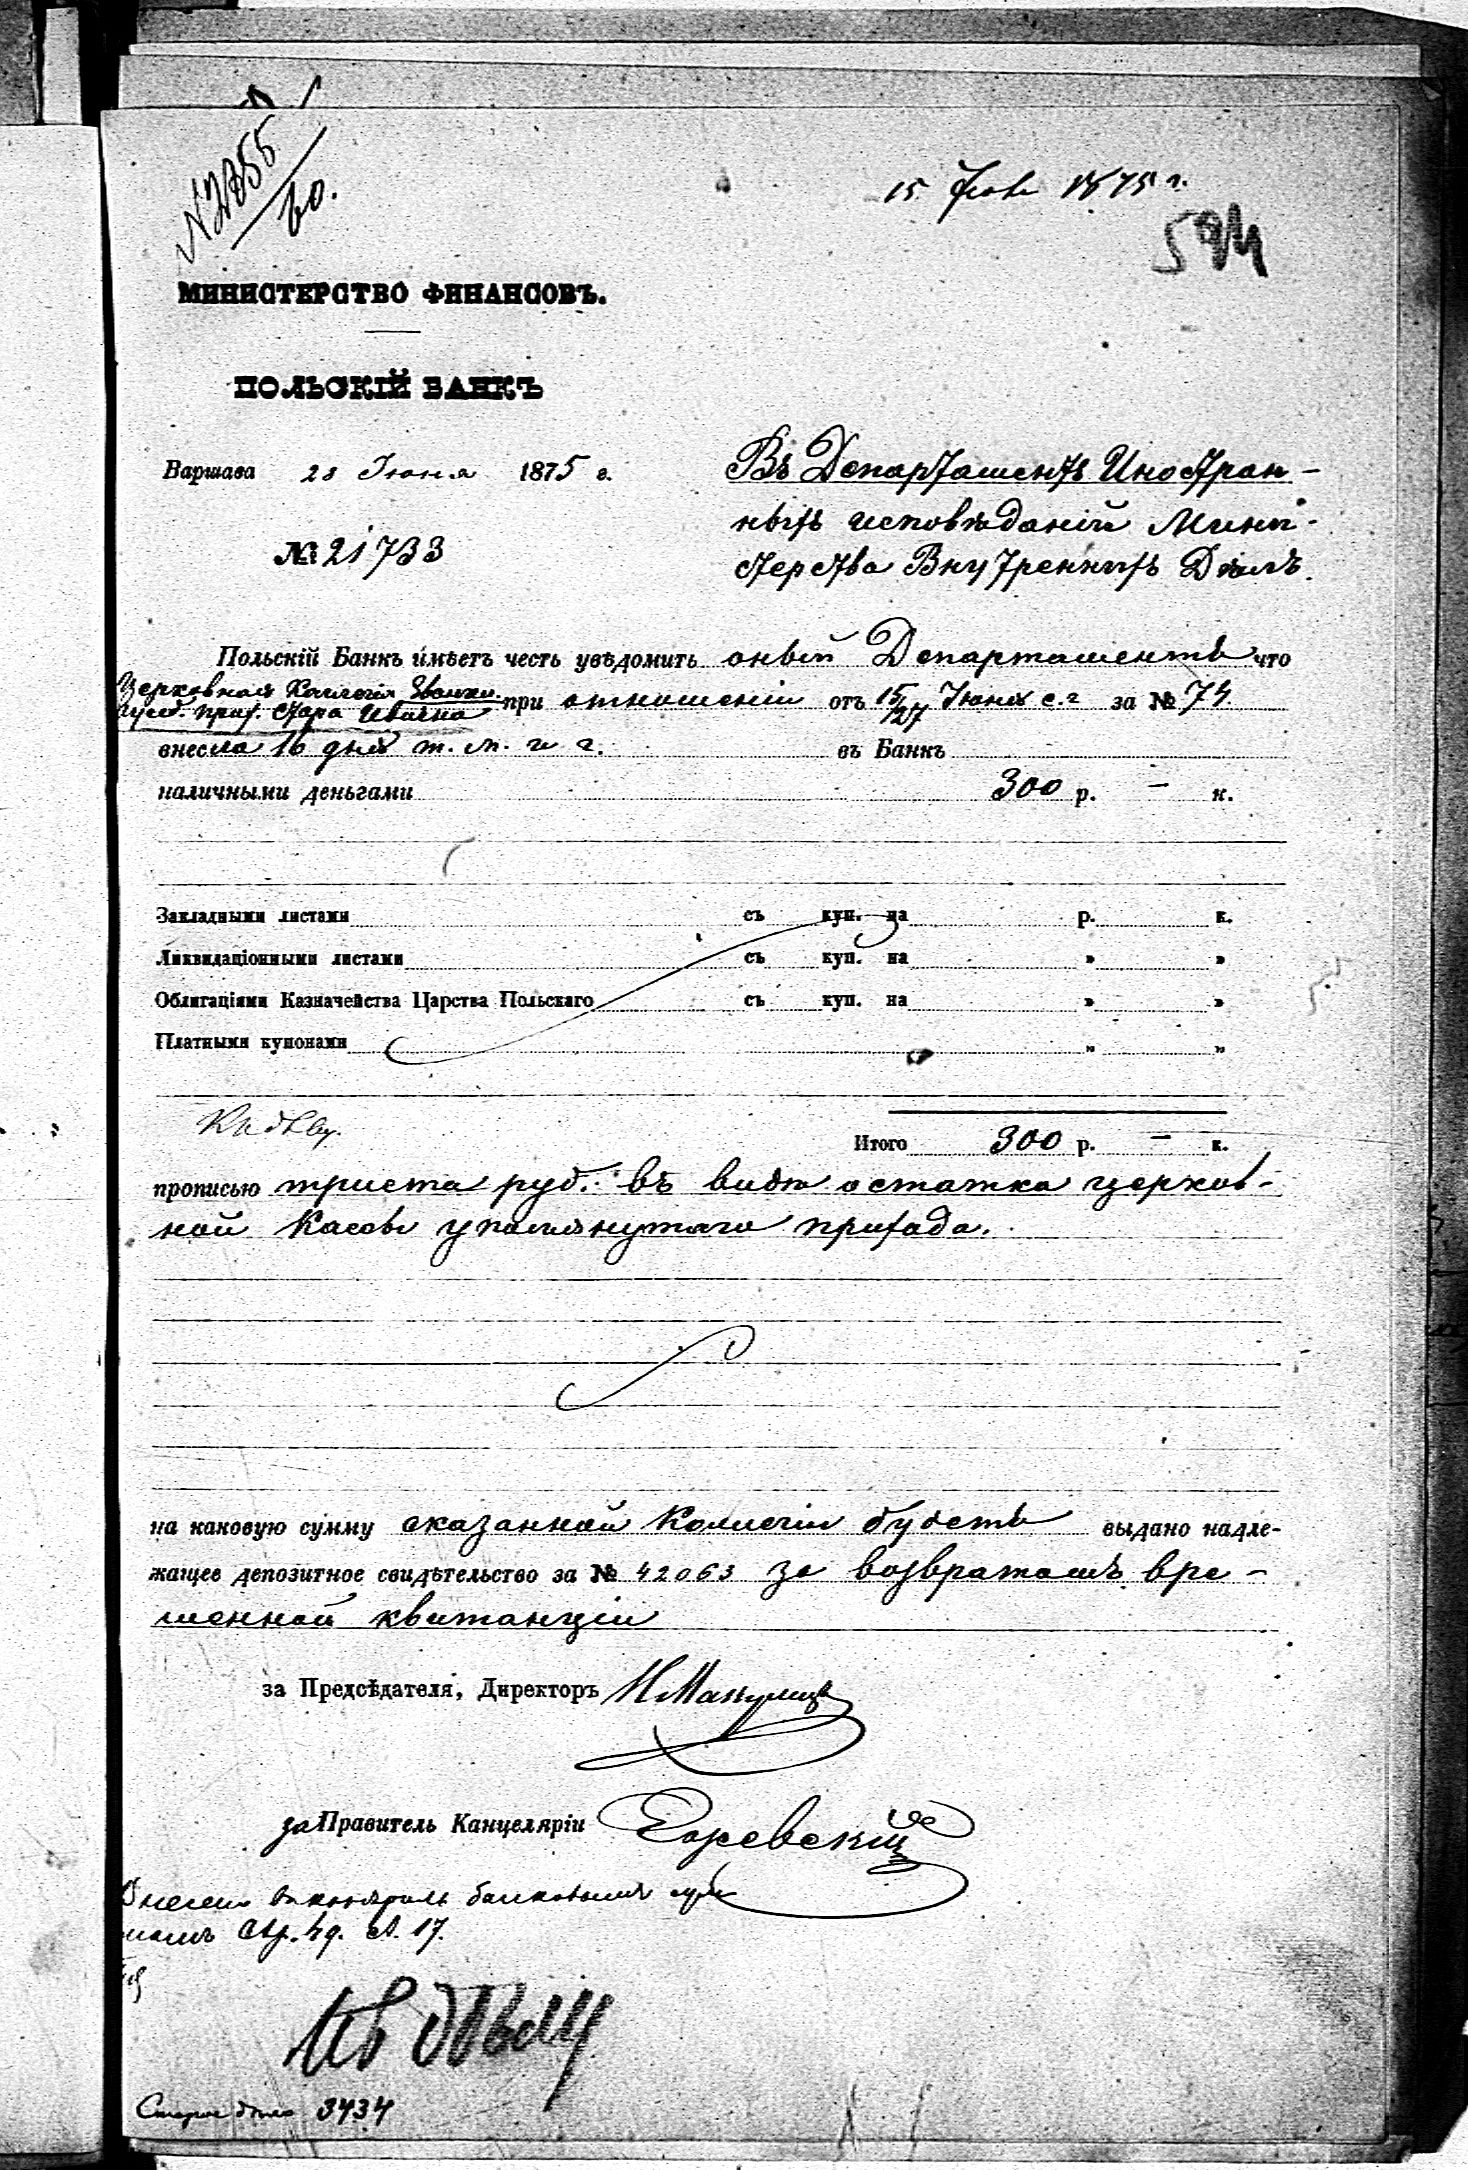 № 2255
60.
15 1875 г.
594
МИНИСТЕРСТВО ФИНАНСОВЪ.
ПОЛЬСКІЙ БАНКЪ
Варшава 28 Іюня 1875 г.
№ 21733
Въ Департаментъ Иностран-
ныхъ исповѣданій Мини-
стерства Внутреннихъ Дѣлъ.
Польскій Банкъ имѣетъ честь увѣдомить оный Департаментъ что
Церковная Коллегія Еванги.
Аугсб. прих. Стара Ивична при отношеніи отъ 15/27 Іюня с. г за № 74.
внесла 16 дня т. м. и г. въ Банкъ
наличными деньгами 300 р. — к.
Закладными листами съ куп. на р. к.
Ликвидаціонными листами съ куп. на » »
Облигаціями Казначейства Царства Польскаго съ куп. на » »
Платными купонами „ „
Итого 300 р. — к.
прописью триста руб. въ видѣ остатка церков-
ной Кассы упомянутаго прихода.
на каковую сумму сказанной Коллегіи будетъ выдано надле-
жащее депозитное свидѣтельство за № 42063 за возвратомъ вре-
менной квитанціи
за Предсѣдателя, Директоръ
за Правитель Канцеляріи
Внесено въ контроль банковымъ сум
мамъ стр. 49. А. 17.
Къ дѣлу
Старое дѣло 3434